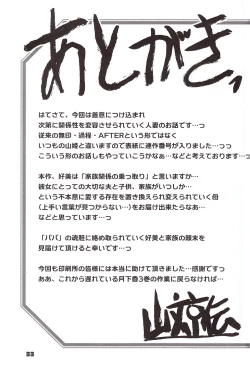 あとがき,
はてさて、今回は善意につけ込まれ
次第に関係性を変容させられていく人妻のお話です…っ
従来の無印・過程・AFTERという形ではなく
いつもの山姫と違いますので表紙に連作番号が入りました…っっ
こういう形のお話しもやっていこうかなぁ…などと考えております…っ
本作、好美は「家族関係の乗っ取り」と言いますか…
彼女にとっての大切な夫と子供、家族がいつしか…
という不本意に愛する存在を置き換えられ変えられていく母
(上手い言葉が見つからない…)をお届け出来たらなぁ…
などと思っています…っ
「パパ」の魂胆に絡め取られていく好美と家族の顛末を
見届けて頂けると幸いです…っ
今回も印刷所の皆様には本当に助けて頂きました…感謝ですっ
ああ、これから遅れている月下香3巻の作業に戻らなければ…
33